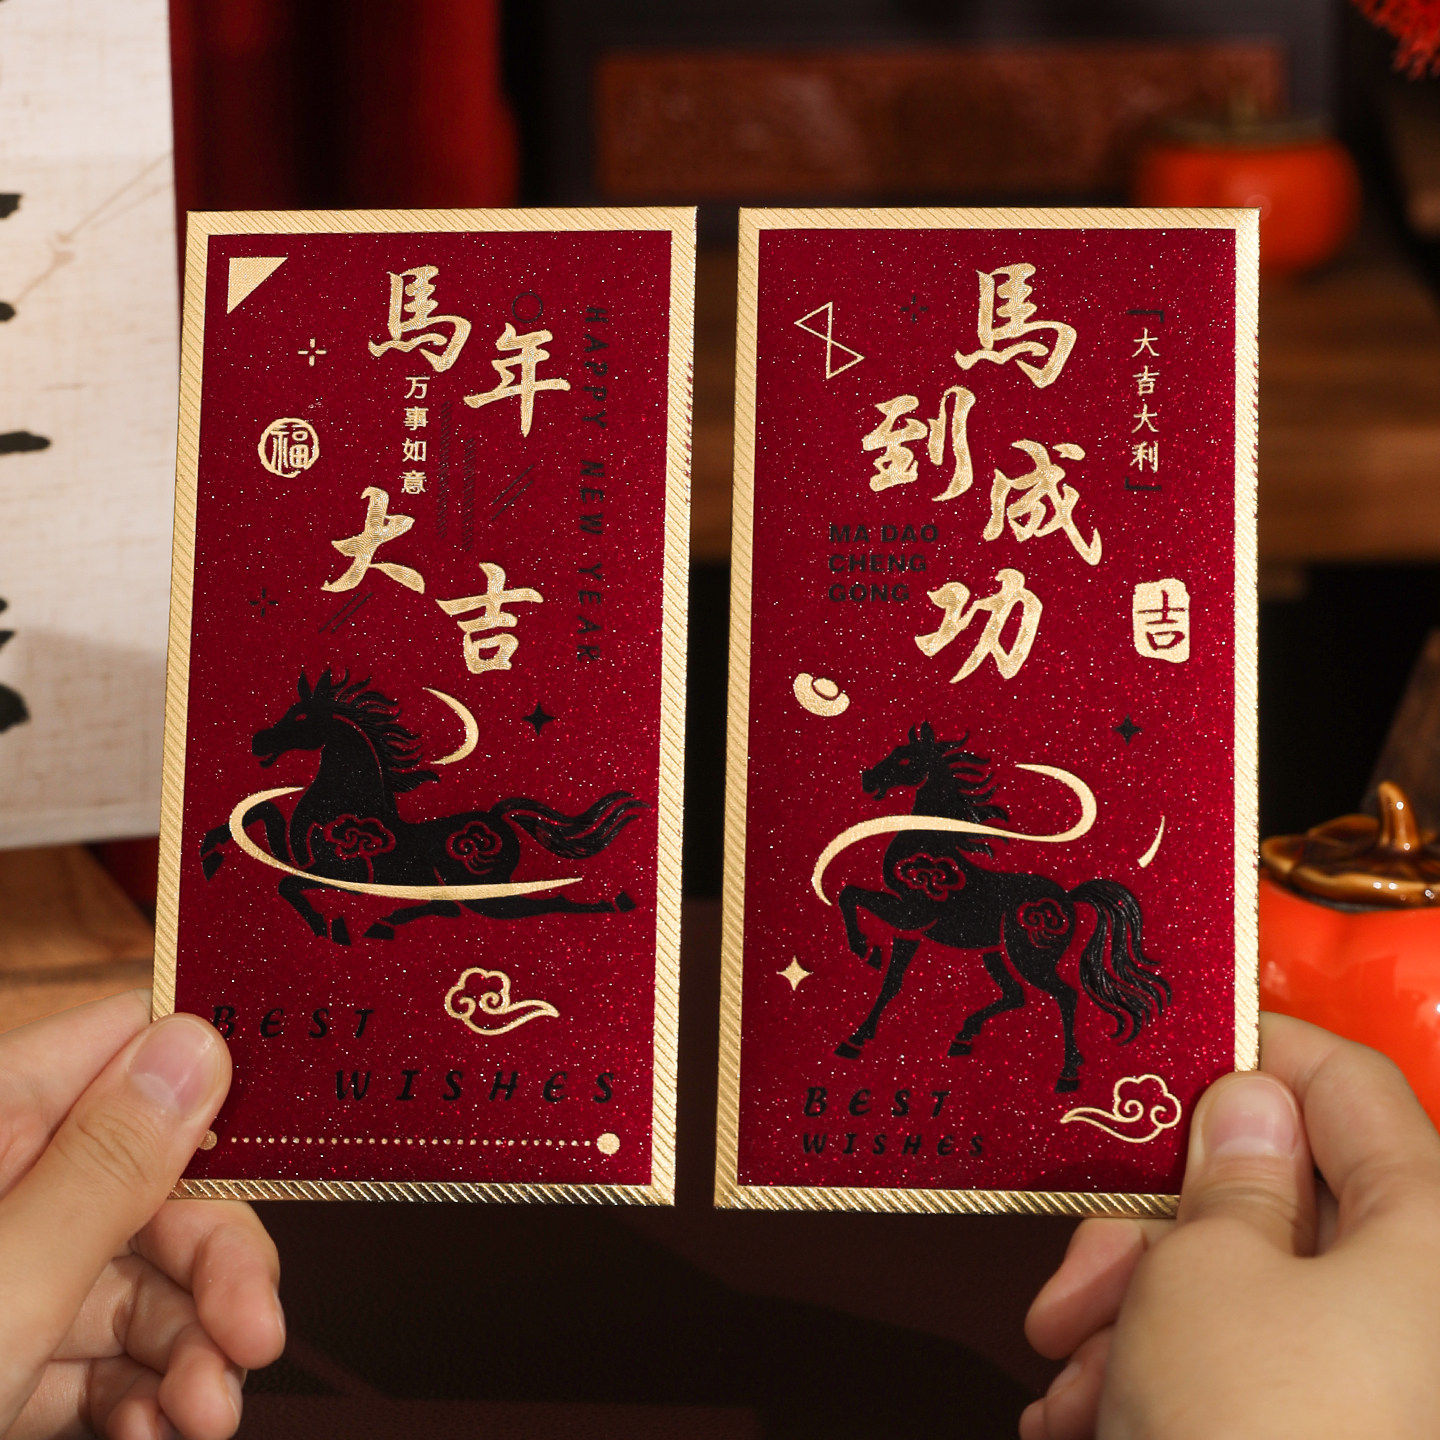 馬年
大吉
万事如意
HAPPY NEW YEAR
福
BEST
WISHES
馬到成功
「大吉大利」
MA DAO
CHENG
GONG
吉
BEST
WISHES